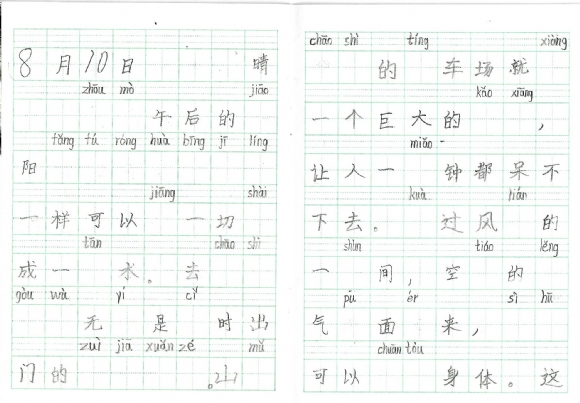 8月10日 晴
zhōu mò jiāo
午后的
tǎng tú róng huà bīng jī líng
阳
jiāng shài
一样可以 一切
tān chāo shì
成一 水。去
gòu wù yí cǐ
无 是 时出
zuì jiā xuǎn zé mǔ
门的 。山
chāo shì tíng xiàng
的 车场就
kǎo xiāng
一个巨大的 ，
miǎo
让人一 钟都呆不
kuà lián
下去。 过风 的
shùn tiáo lěng
一 间，空 的
pū ér sì hū
气 面来，
chuān tòu
可以 身体。这